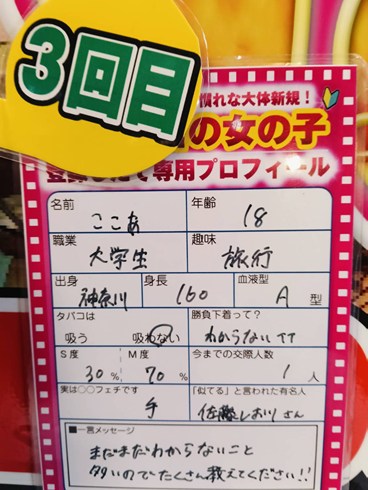 3回目
慣れな大体新規!
の女の子
専用プロフィール
名前 ここあ 年齢 18
職業 大学生 趣味 旅行
出身 神奈川 身長 160 血液型 A 型
タバコは 吸う 吸わない 勝負下着って? わからないTT
S度 30% M度 70% 今までの交際人数 1人
実は○○フェチです 手 「似てる」と言われた有名人 佐藤しおりさん
■一言メッセージ
まだまだわからないこと
多いのでたくさん教えてください!!